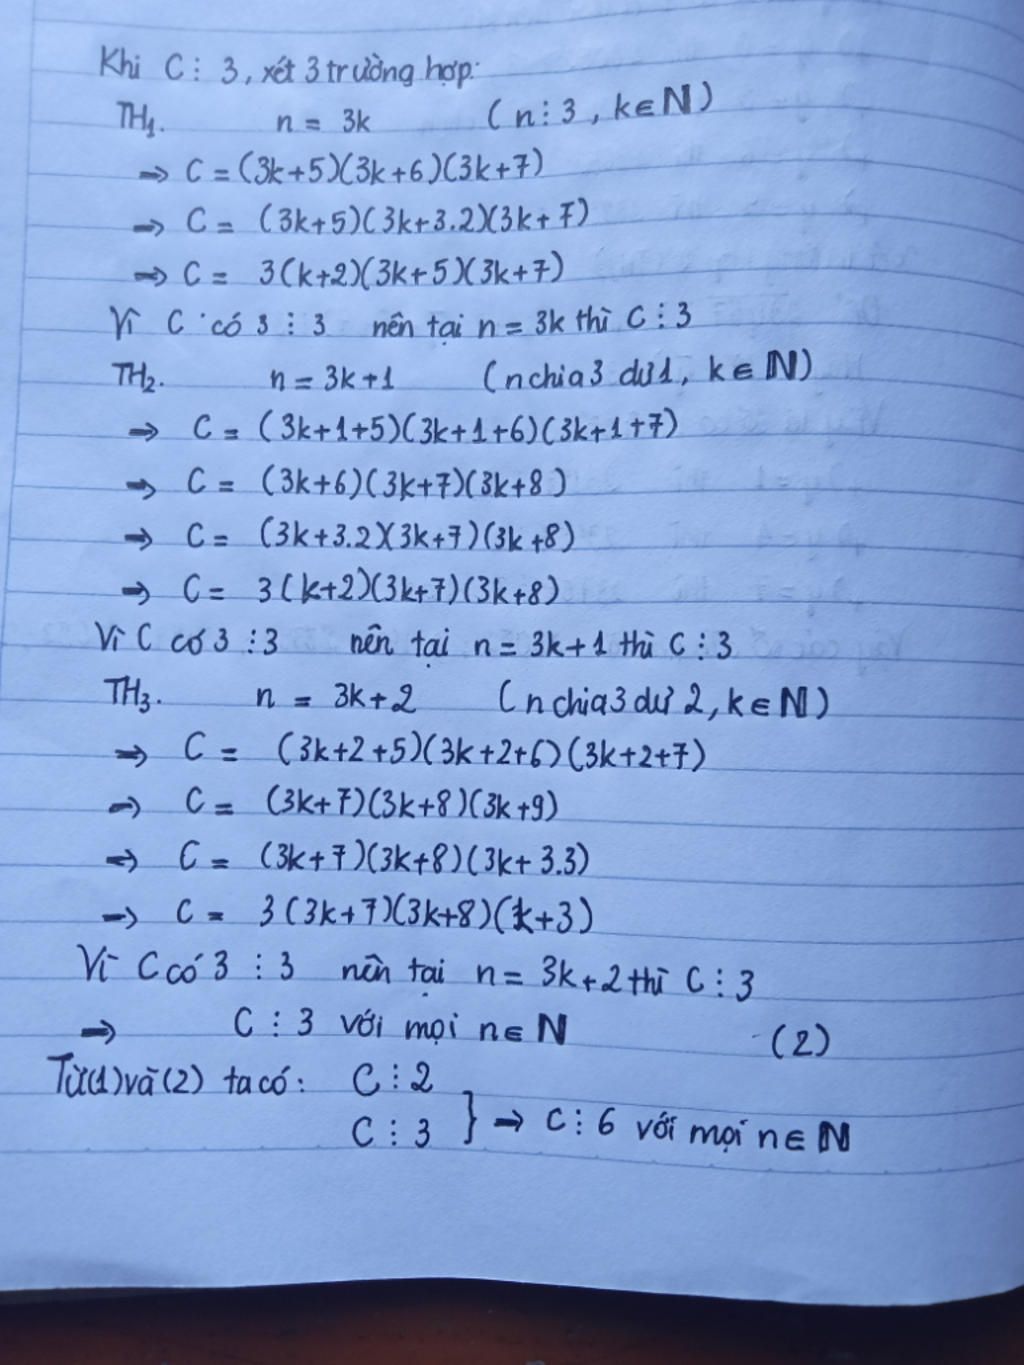 Khi C ⋮ 3, xét 3 trường hợp:
TH1. n = 3k (n ⋮ 3, k ∈ ℕ)
⇒ C = (3k+5)(3k+6)(3k+7)
⇒ C = (3k+5)(3k+3.2)(3k+7)
⇒ C = 3(k+2)(3k+5)(3k+7)
Vì C có 3 ⋮ 3 nên tại n = 3k thì C ⋮ 3
TH2. n = 3k+1 (n chia 3 dư 1, k ∈ ℕ)
⇒ C = (3k+1+5)(3k+1+6)(3k+1+7)
⇒ C = (3k+6)(3k+7)(3k+8)
⇒ C = (3k+3.2)(3k+7)(3k+8)
⇒ C = 3(k+2)(3k+7)(3k+8)
Vì C có 3 ⋮ 3 nên tại n = 3k+1 thì C ⋮ 3
TH3. n = 3k+2 (n chia 3 dư 2, k ∈ ℕ)
⇒ C = (3k+2+5)(3k+2+6)(3k+2+7)
⇒ C = (3k+7)(3k+8)(3k+9)
⇒ C = (3k+7)(3k+8)(3k+3.3)
⇒ C = 3(3k+7)(3k+8)(k+3)
Vì C có 3 ⋮ 3 nên tại n = 3k+2 thì C ⋮ 3
⇒ C ⋮ 3 với mọi n ∈ ℕ (2)
Từ (1) và (2) ta có: C ⋮ 2
C ⋮ 3 } ⇒ C ⋮ 6 với mọi n ∈ ℕ